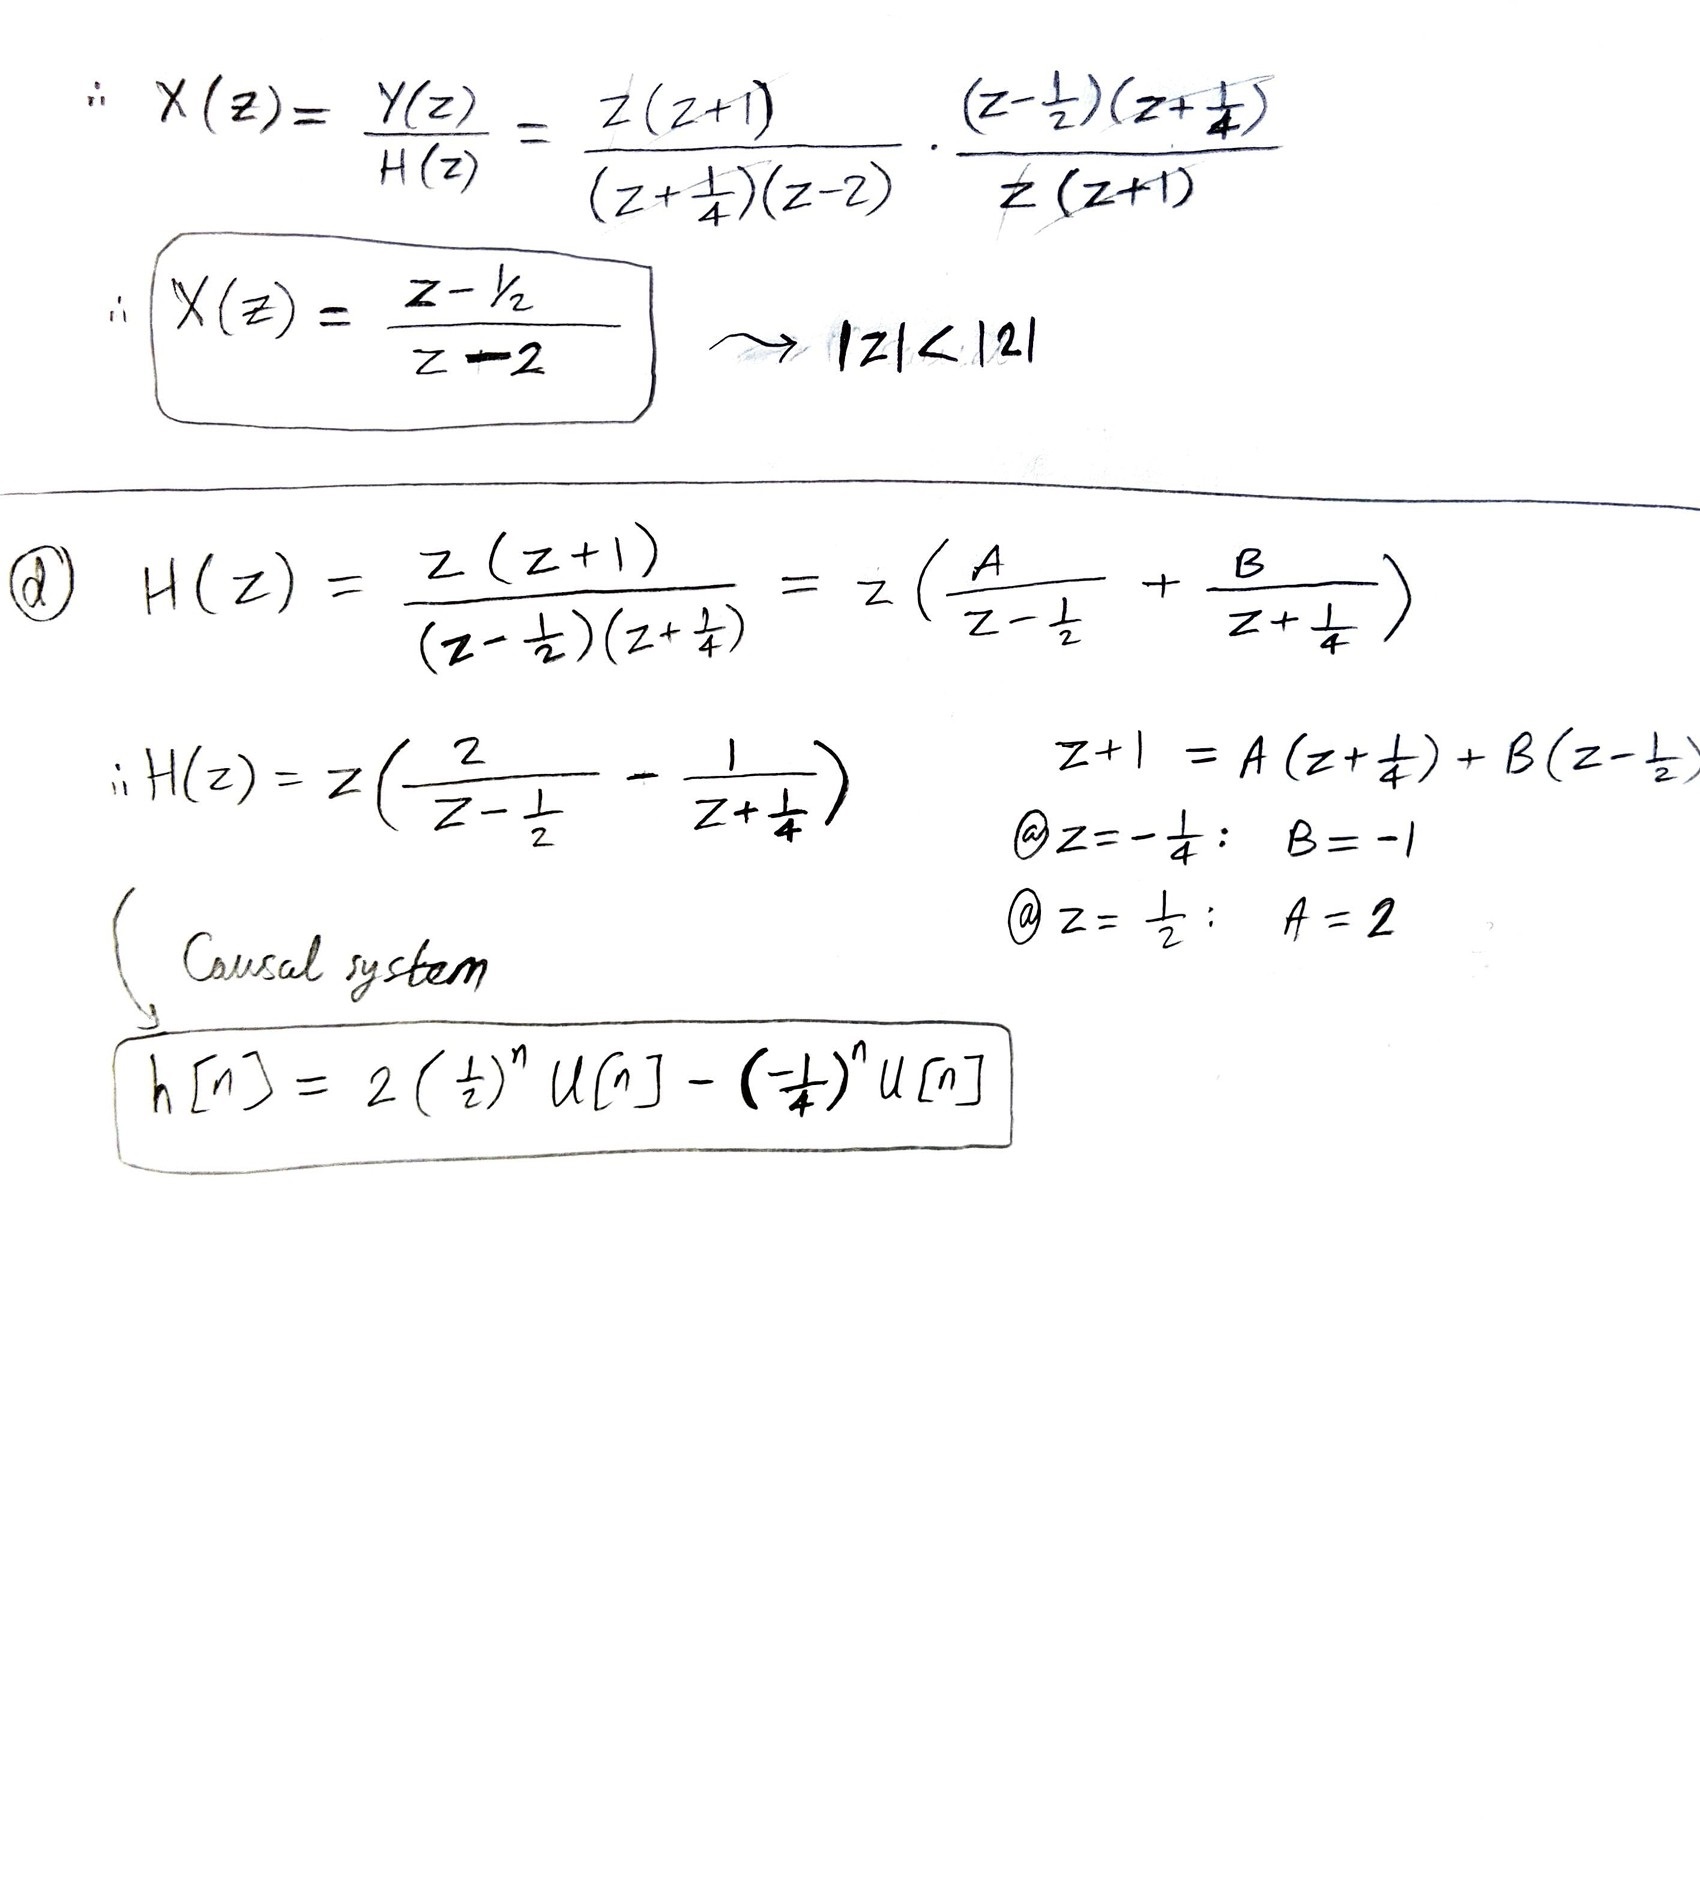 ∴ X(z) = Y(z)/H(z) = z(z+1)/((z+1/4)(z-2)) · ((z-1/2)(z+1/4))/(z(z+1))
∴ X(z) = (z-1/2)/(z-2) ⇝ |z| < |2|
ⓓ H(z) = z(z+1)/((z-1/2)(z+1/4)) = z(A/(z-1/2) + B/(z+1/4))
∴ H(z) = z(2/(z-1/2) - 1/(z+1/4))
z+1 = A(z+1/4) + B(z-1/2)
@ z = -1/4 : B = -1
@ z = 1/2 : A = 2
Causal system
h[n] = 2(1/2)^n U[n] - (-1/4)^n U[n]